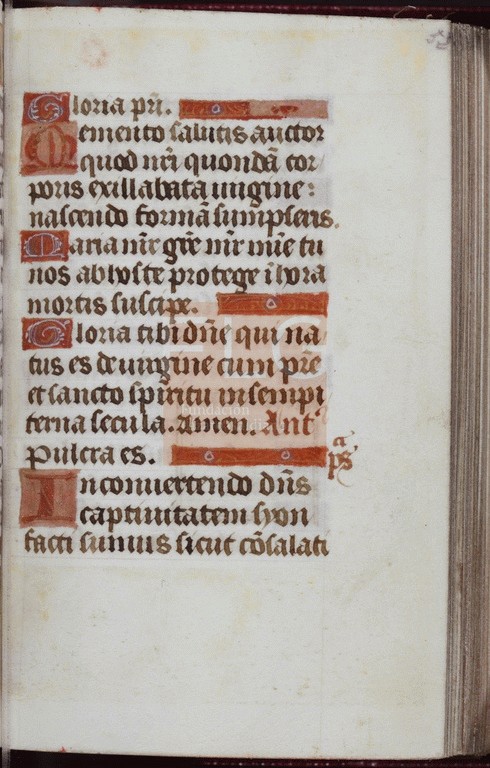 Gloria pr̄i.
Memento salutis auctor
quod nr̄i quondā cor
poris exillabata uirgine:
nascendo formā sumpseris.
Maria mr̄e gr̄e mr̄e mīe tu
nos ab hoste protege ī hora
mortis suscipe.
Gloria tibi dn̄e qui na
tus es de uirgine cum pr̄e
et sancto spiritu in sempi
terna secula. Amen. Ant'
Pulcra es. ps̄
In conuertendo dn̄s
captiuitatem syon
facti sumus sicut cōsalati